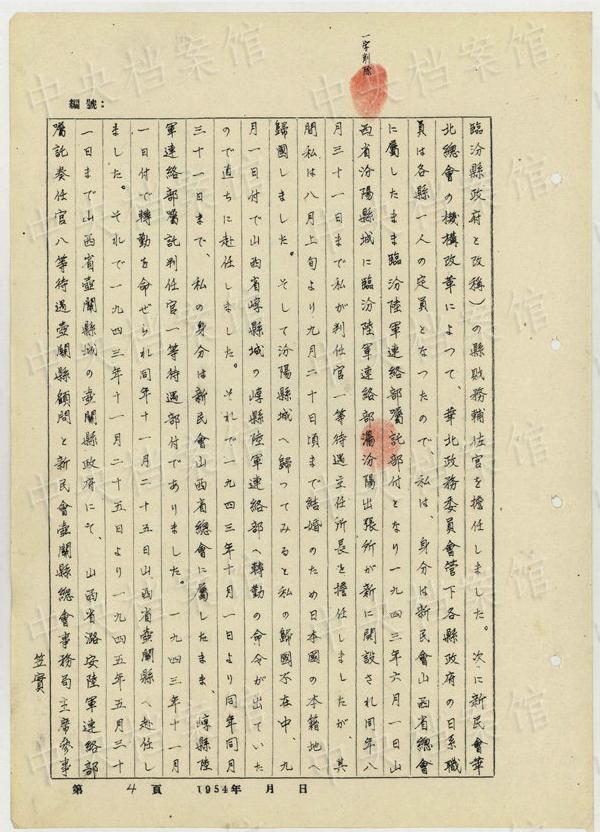 一字削除
編號：
臨汾縣政府と改稱）の縣財務輔佐官を擔任しました。次に新民會華
北總會の機構改革によつて、華北政務委員會管下各縣政府の日系職
員は各縣一人の定員となつたので、私は、身分は新民會山西省總會
に屬したまま臨汾陸軍連絡部囑託部付となり一九四三年六月一日山
西省汾陽縣城に臨汾陸軍連絡部汾陽出張所が新に開設され同年八
月三十一日まで私が判任官一等待遇主任所長を擔任しましたが、其
間私は八月上旬より九月二十日頃まで結婚のため日本國の本籍地へ
歸國しました。そして汾陽縣城へ歸つてみると私の歸國不在中、九
月一日付で山西省崞縣城の崞縣陸軍連絡部へ轉勤の命令が出ていた
ので直ちに赴任しました。それで一九四三年十月一日より同年同月
三十一日まで、私の身分は新民會山西省總會に屬したまま、崞縣陸
軍連絡部囑託判任官一等待遇部付でありました。一九四三年十一月
一日付で轉勤を命ぜられ同年十一月二十五日山西省壺關縣へ赴任し
ました。それで一九四三年十一月二十五日より一九四五年五月三十
一日まで山西省壺關縣城の壺關縣政府にて、山西省潞安陸軍連絡部
囑託奏任官八等待遇壺關縣顧問と新民會壺關縣總會事務局主席參事
笠實
第 4 頁 1954年 月 日
中央档案馆